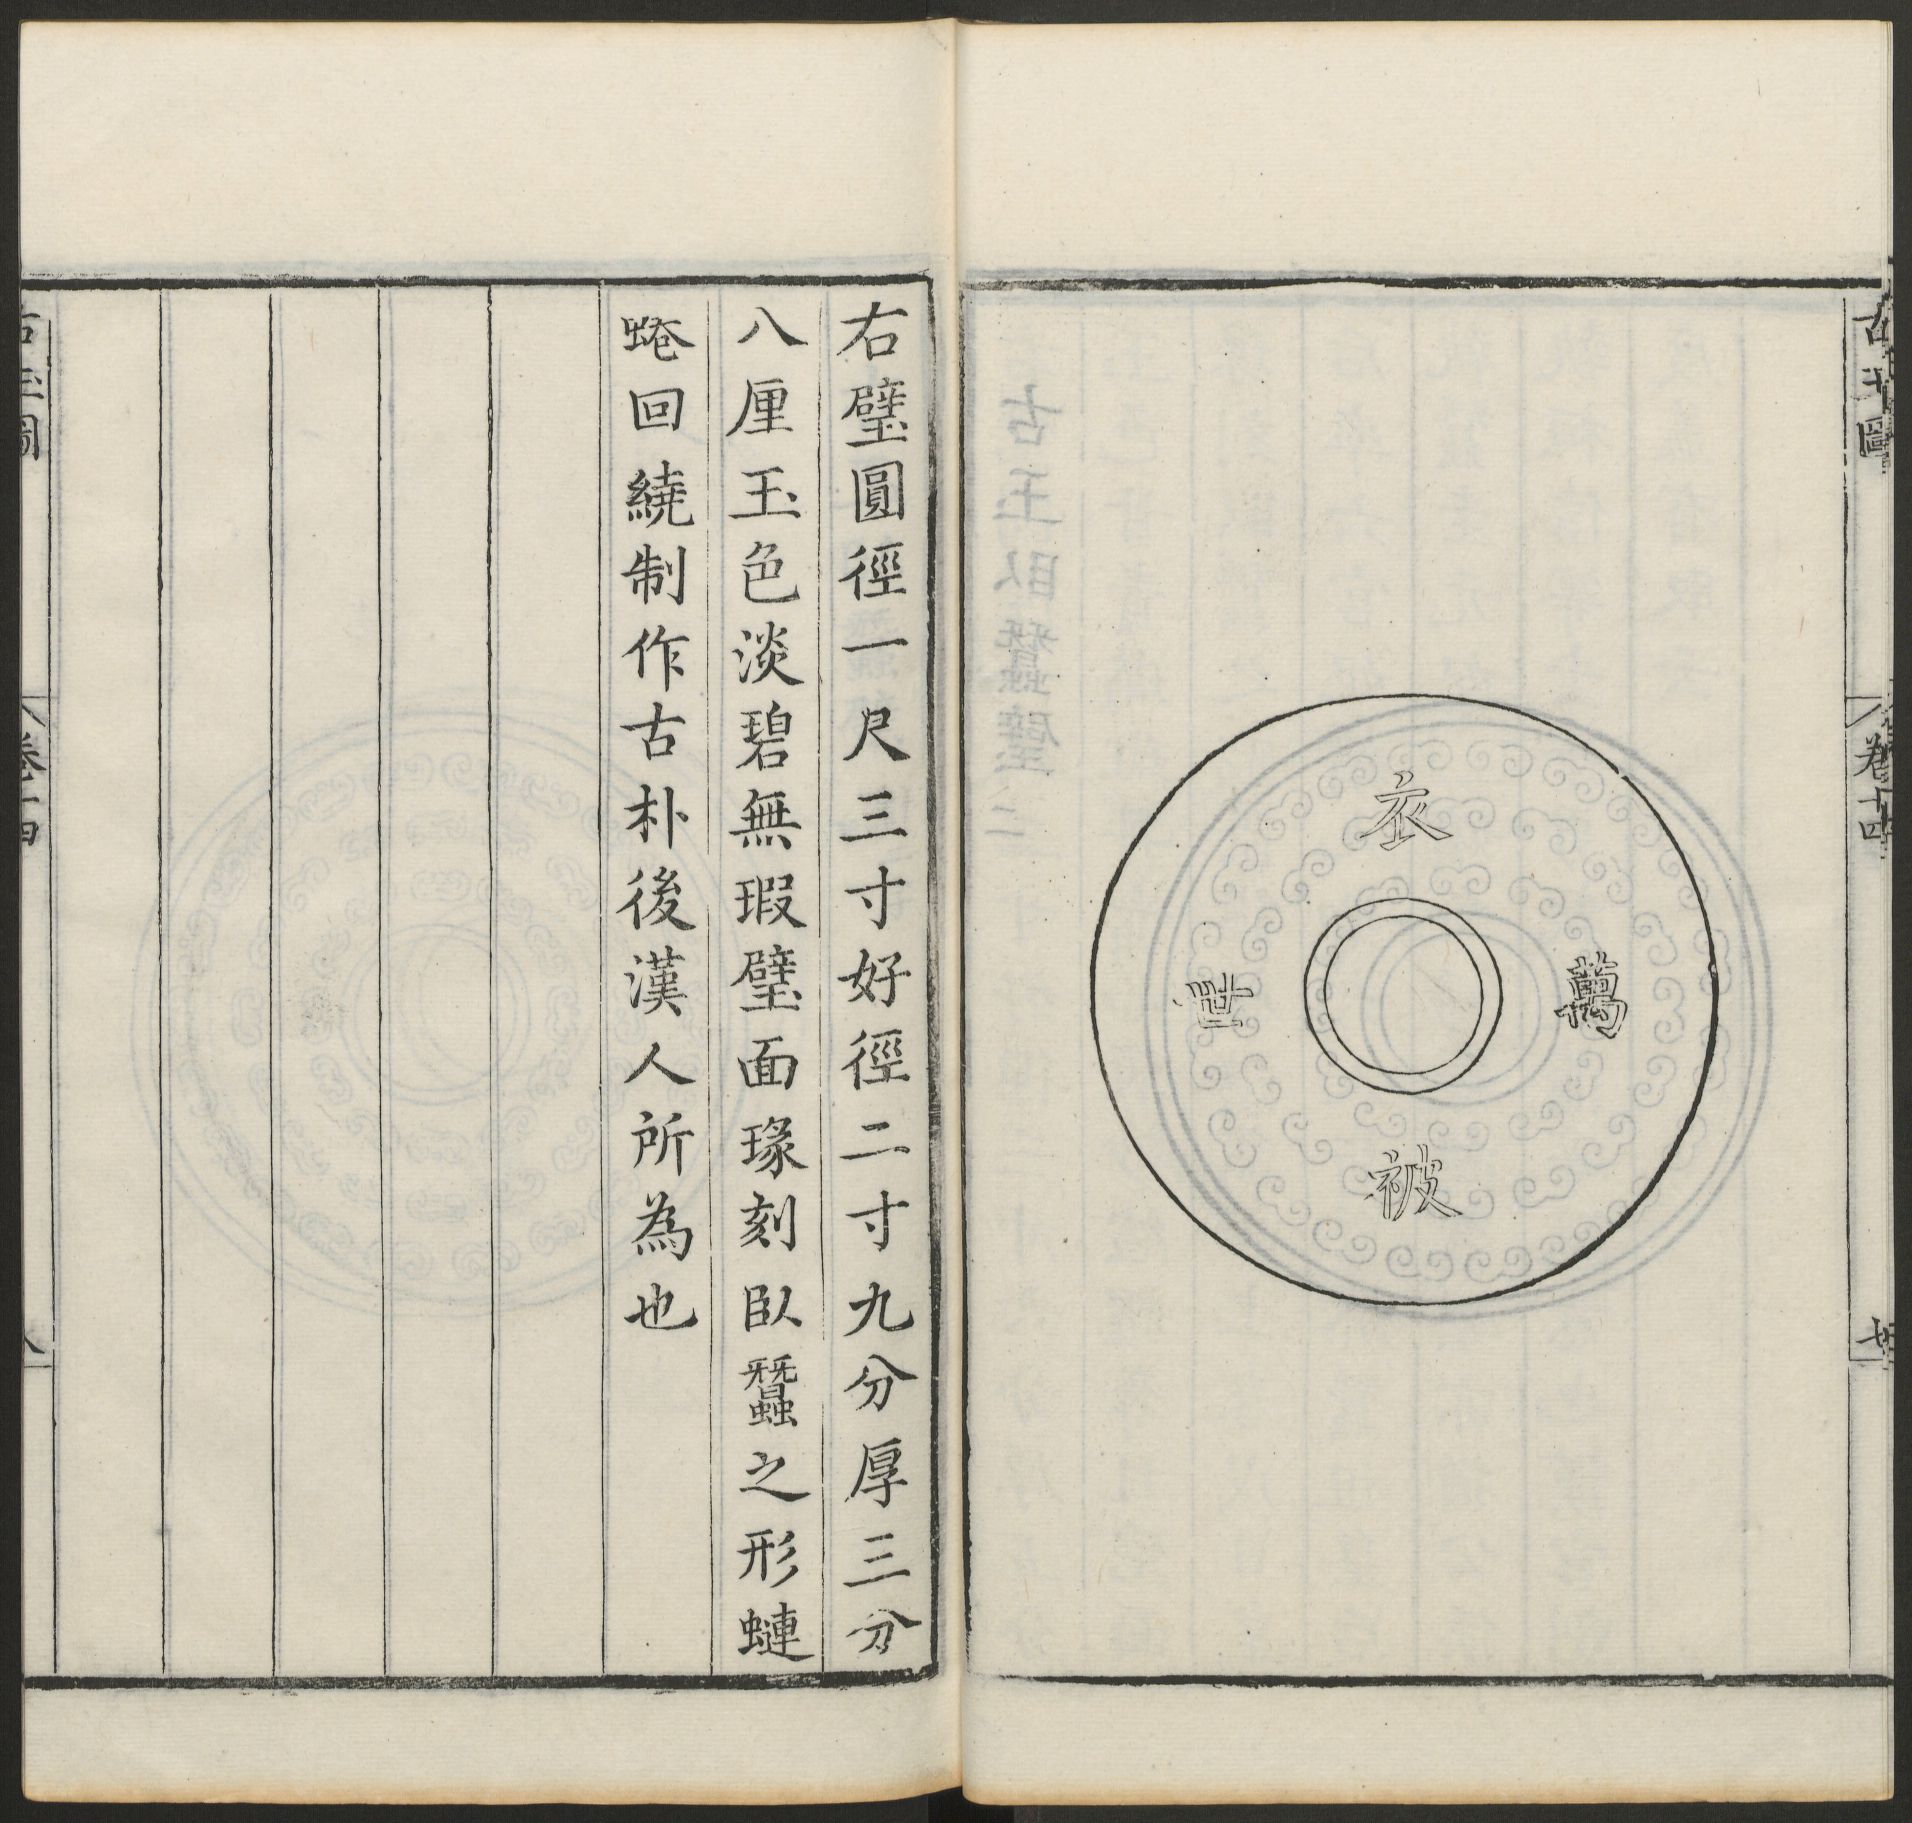 古玉圖
卷十四
七
衣
萬
被
右璧圓徑一尺三寸好徑二寸九分厚三分
八厘玉色淡碧無瑕璧面瑑刻臥蠶之形䗴
蜷回繞制作古朴後漢人所為也
古玉圖
卷十四
八